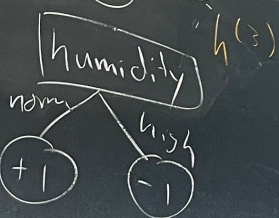 h(3)
humidity
norm
high
+1
-1